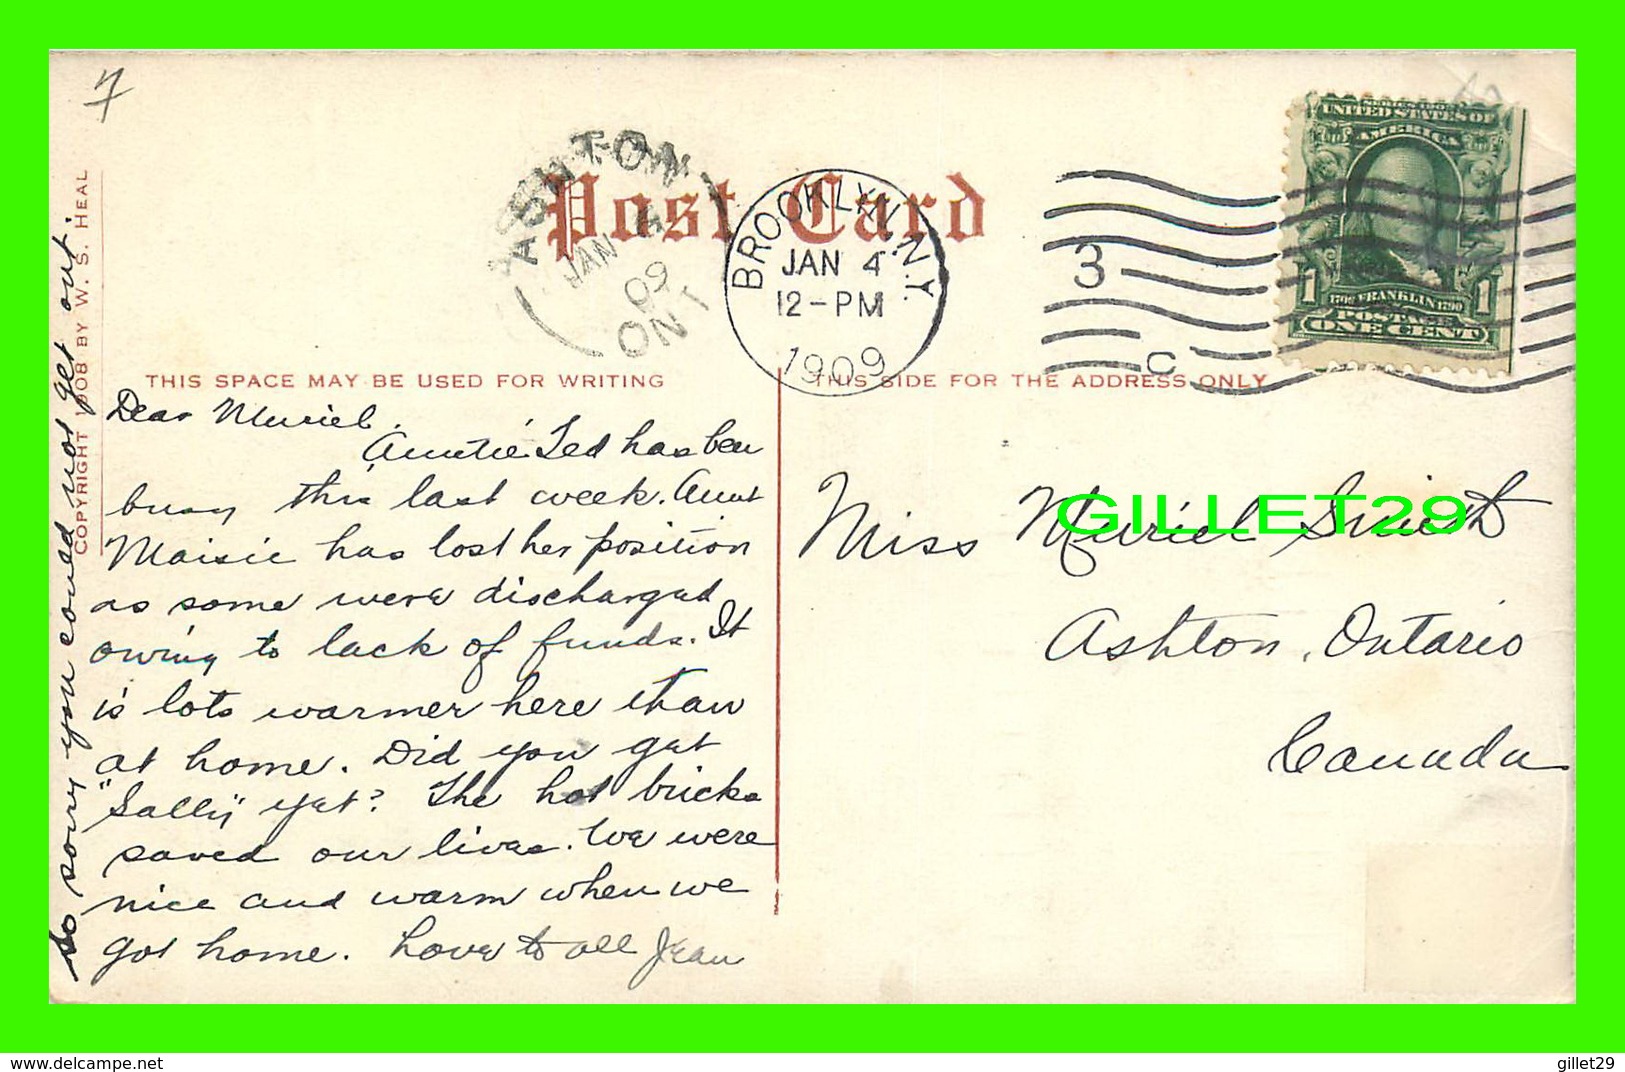 7
Post Card
ASHTON
JAN
09
ONT
BROOKLYN, N.Y.
JAN 4
12-PM
1909
3
C
SERIES 1902
UNITED STATES OF
AMERICA
1 1706 FRANKLIN 1790 1
POSTAGE
ONE CENT
COPYRIGHT 1908 BY W. S. HEAL
THIS SPACE MAY BE USED FOR WRITING
THIS SIDE FOR THE ADDRESS ONLY
Dear Muriel.
Auntie Ted has been
busy this last week. Aunt
Maisie has lost her position
as some were discharged
owing to lack of funds. It
is lots warmer here than
at home. Did you get
"Sally" yet? The hot bricks
saved our lives. We were
nice and warm when we
got home. Love to all Jean
so sorry you could not get out.
Miss Muriel
Ashton, Ontario
Canada
GILLET29
www.delcampe.net
gillet29